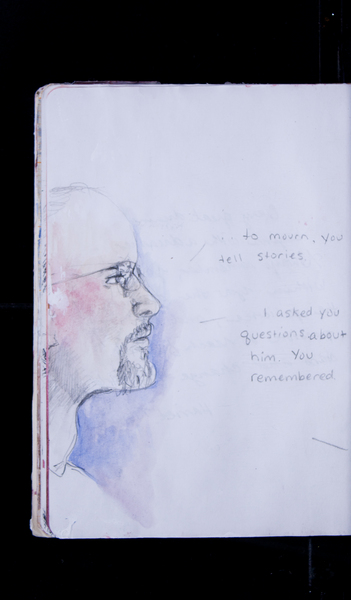 to mourn, you
tell stories.
I asked you
questions about
him. You
remembered